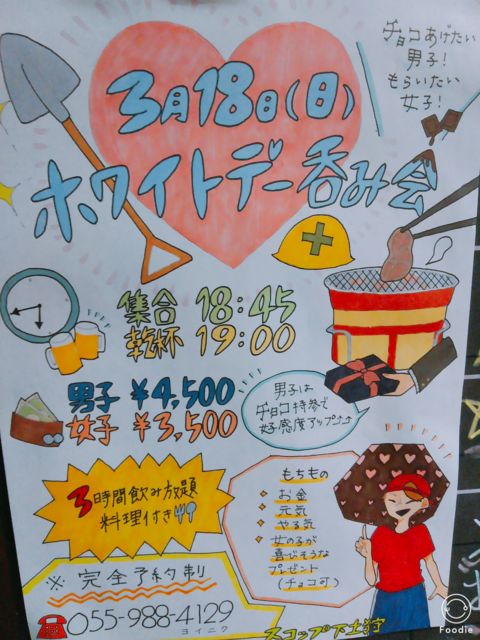 チョコあげたい
男子！
もらいたい
女子！
3月18日(日)
ホワイトデー呑み会
集合 18:45
乾杯 19:00
男子 ¥4,500
女子 ¥3,500
男子は
チョコ持参で
好感度アップ↑
3時間飲み放題
料理付き
もちもの
お金
元気
やる気
女の子が
喜びそうな
プレゼント
(チョコ可)
※完全予約制
055-988-4129
ヨイニク
スコップ下土狩
Foodie